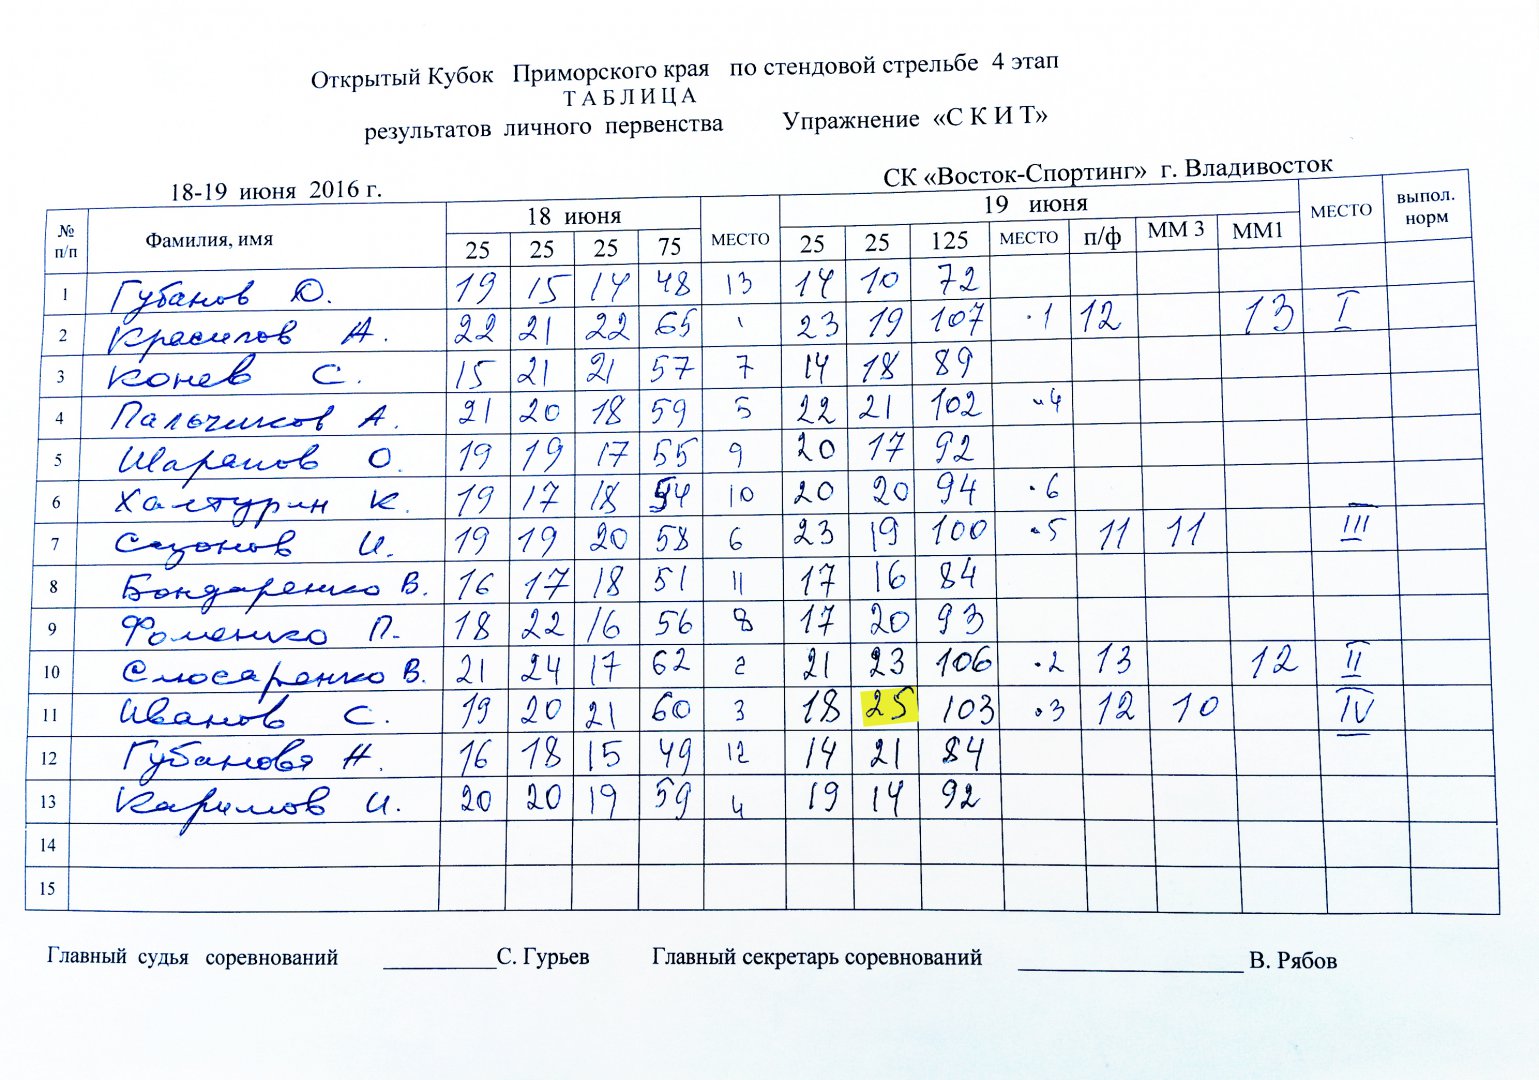 Открытый Кубок Приморского края по стендовой стрельбе 4 этап
Т А Б Л И Ц А
результатов личного первенства Упражнение «С К И Т»
18-19 июня 2016 г. СК «Восток-Спортинг» г. Владивосток
№ п/п Фамилия, имя 18 июня МЕСТО 19 июня МЕСТО выпол. норм
25 25 25 75 25 25 125 МЕСТО п/ф ММ 3 ММ1
1 Губанов Ю. 19 15 14 48 13 14 10 72
2 Красипов А. 22 21 22 65 1 23 19 107 1 12 13 I
3 Конев С. 15 21 21 57 7 14 18 89
4 Пальчиков А. 21 20 18 59 5 22 21 102 4
5 Шарапов О. 19 19 17 55 9 20 17 92
6 Халтурин К. 19 17 18 54 10 20 20 94 6
7 Сазонов И. 19 19 20 58 6 23 19 100 5 11 11 III
8 Бондаренко В. 16 17 18 51 11 17 16 84
9 Фоменко П. 18 22 16 56 8 17 20 93
10 Слюсаренко В. 21 24 17 62 2 21 23 106 2 13 12 II
11 Иванов С. 19 20 21 60 3 18 25 103 3 12 10 IV
12 Губанова Н. 16 18 15 49 12 14 21 84
13 Каримов И. 20 20 19 59 4 19 14 92
14
15
Главный судья соревнований __________ С. Гурьев Главный секретарь соревнований ____________________ В. Рябов